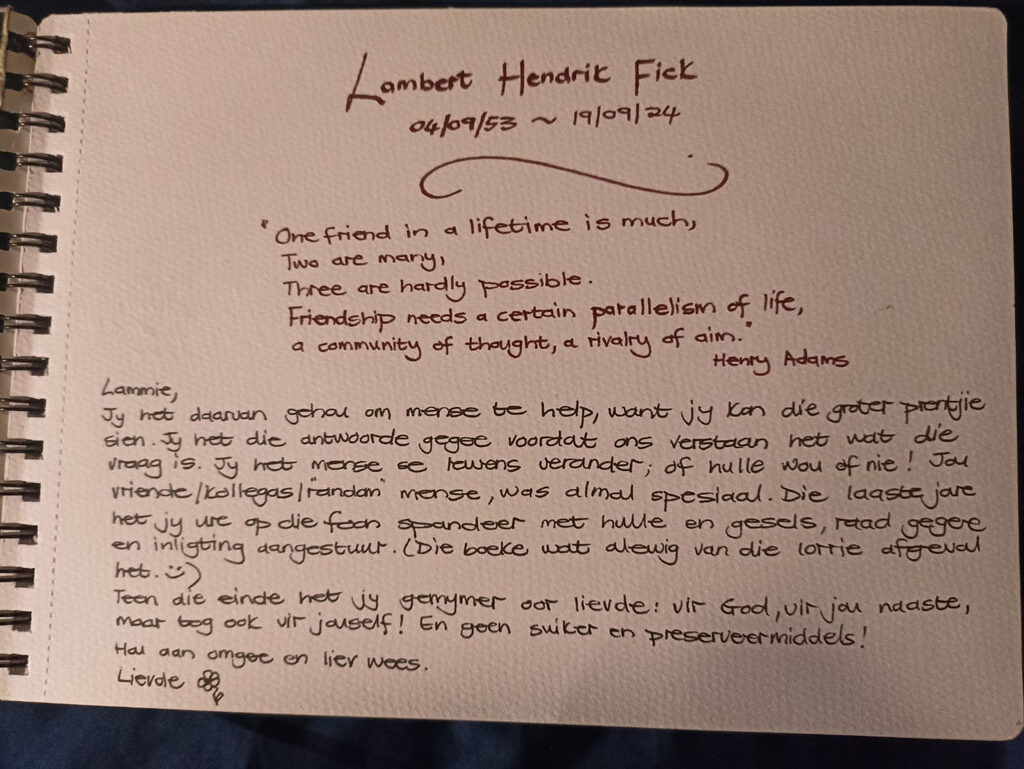 Lambert Hendrik Fick
04/09/53 ~ 19/09/24
"One friend in a lifetime is much,
Two are many,
Three are hardly possible.
Friendship needs a certain parallelism of life,
a community of thought, a rivalry of aim."
Henry Adams
Lammie,
Jy het daarvan gehou om mense te help, want jy kon die groter prentjie
sien. Jy het die antwoorde gegee voordat ons verstaan het wat die
vraag is. Jy het mense se lewens verander; of hulle wou of nie! Jou
vriende/kollegas/"random" mense, was almal spesiaal. Die laaste jare
het jy ure op die foon spandeer met hulle en gesels, raad gegee
en inligting aangestuur. (Die boeke wat alewig van die lorrie afgeval
het. :))
Teen die einde het jy gemymer oor liefde: vir God, vir jou naaste,
maar tog ook vir jouself! En geen suiker en preserveermiddels!
Hou aan omgee en lief wees.
Liefde